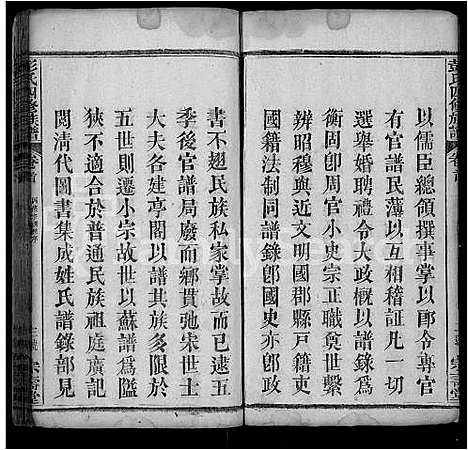 彭氏四修族譜
卷首
以儒臣總領撰事掌以郎令專官
有官譜民薄以互相稽証凡一切
選舉婚聘禮令大政概以譜錄爲
衡固卽周官小史宗正職奠世繫
辨昭穆與近文明國鄉縣戶籍吏
國籍法制同譜錄卽國史亦卽政
書不翅民族私家掌故而已逮五
季後官譜局廢而鄉貫弛宋世士
大夫各建亭閣以譜其族多限於
五世則遷小宗故世以蘇譜爲隘
狹不適合於普通民族祖庭廣記
閱淸代圖書集成姓氏譜錄部見
彭氏四修族譜
卷首